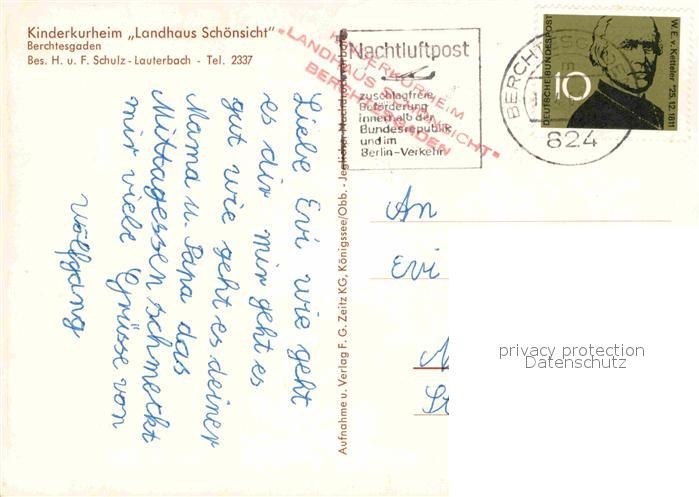 Kinderkurheim „Landhaus Schönsicht"
Berchtesgaden
Bes. H. u. F. Schulz-Lauterbach - Tel. 2337
Liebe Evi wie geht
es dir mir geht es
gut wie geht es deiner
Mama u. Papa das
Mittagessen schmeckt
mir viele Grüsse von
Wolfgang
Aufnahme u. Verlag F. G. Zeitz KG, Königssee/Obb. - Jeglicher Nachdruck verboten
KINDERKURHEIM
"LANDHAUS SCHÖNSICHT"
BERCHTESGADEN
Nachtluftpost
zuschlagfreie
Beförderung
innerhalb der
Bundesrepublik
und im
Berlin-Verkehr
BERCHTESGADEN
824
DEUTSCHE BUNDESPOST
10
W. E. v. Ketteler *25.12.1811
An
Evi
privacy protection
Datenschutz